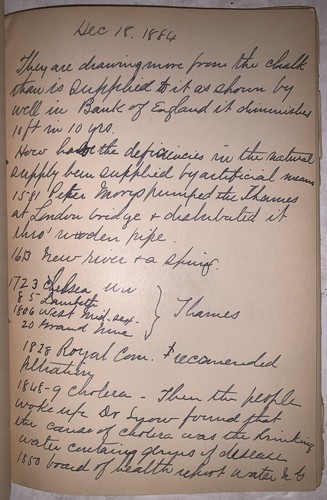 Dec 18. 1884
They are drawing more from the chalk
than is supplied to it as shown by
well in Bank of England it diminishes
10 ft in 10 yrs.
How has the deficiencies in the natural
supply been supplied by artificial means
1581 Peter Morrys pumped the Thames
at London bridge & distributed it
thro' wooden pipe.
1613 New river & a spring.
1723 Chelsea
85 Lambeth
1806 West Mid-sex
20 Grand
Thames
1828 Royal Com. recomended
filtering
1848-9 Cholera - Then the people
woke up Dr Snow found that
the cause of cholera was the drinking
water containing germs of disease
1850 board of health report water N G